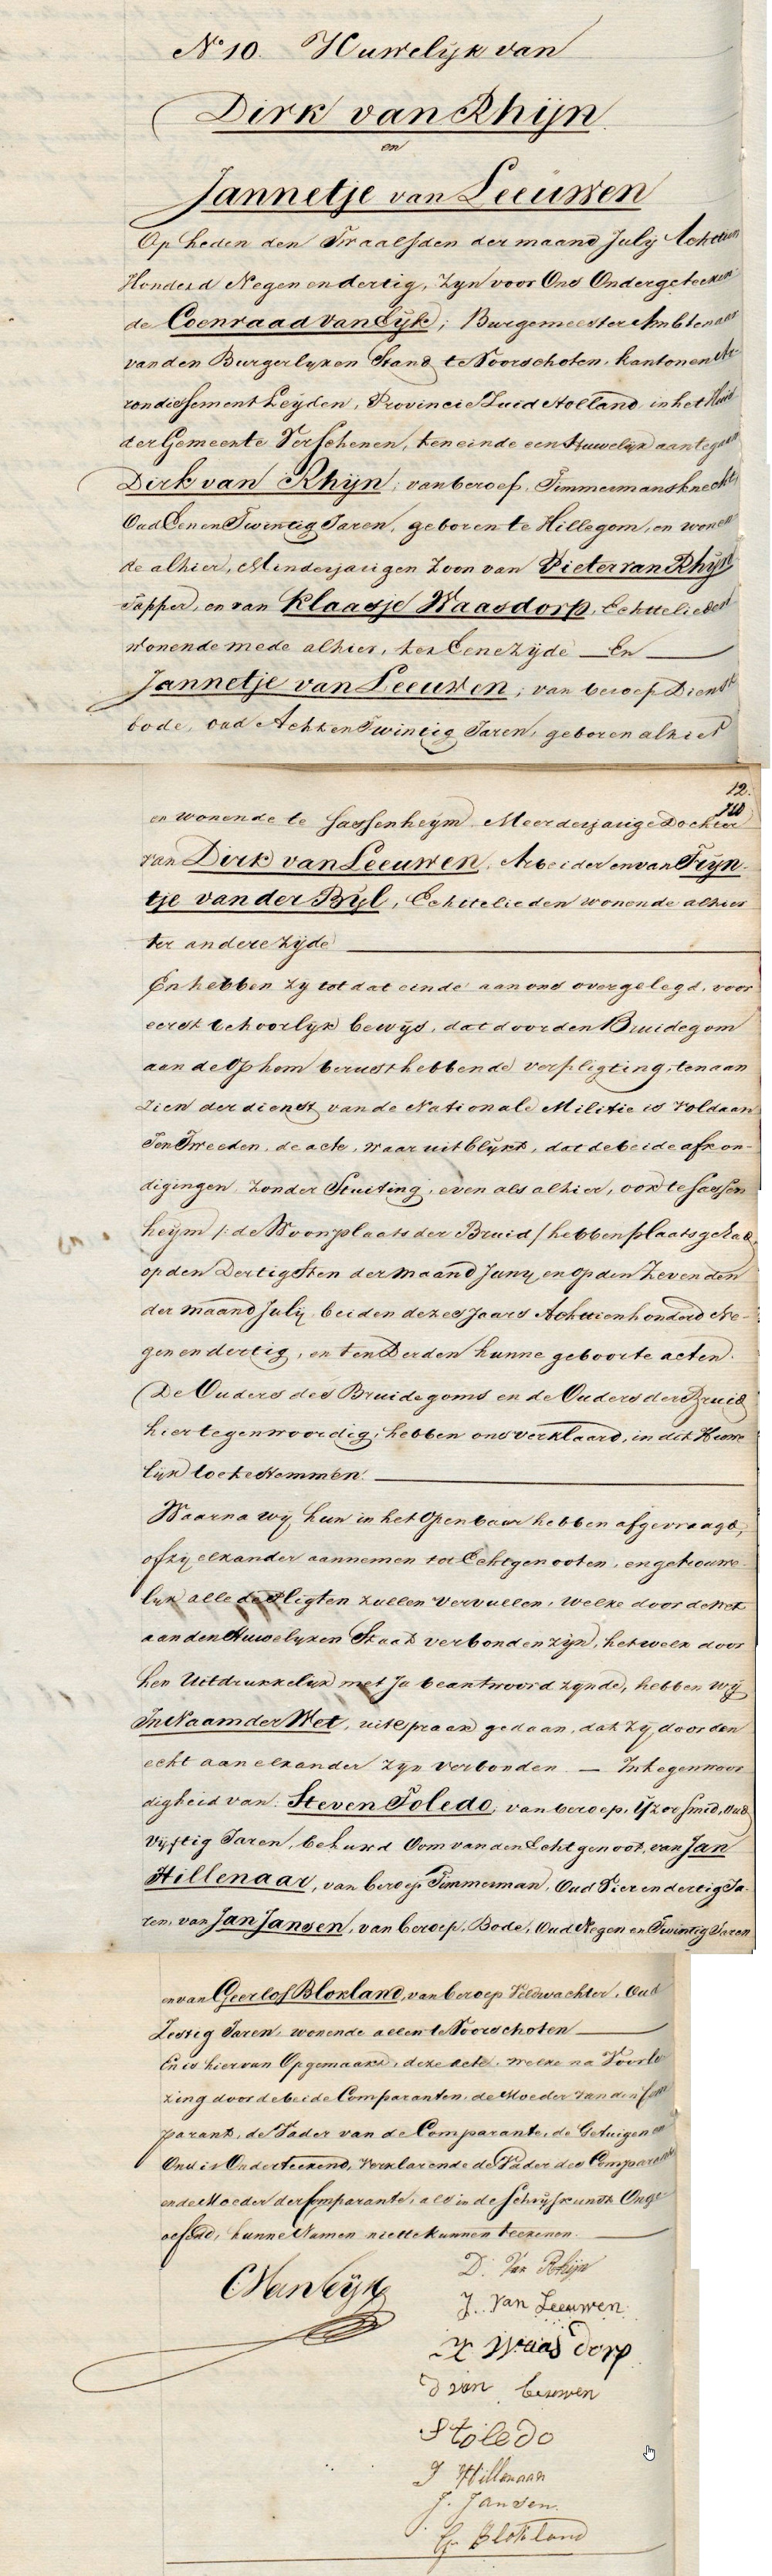 N° 10. Huwelijk van
Dirk van Rhijn
en
Jannetje van Leeuwen
Op heden den Twaalfden der maand July Achttien
Honderd Negen en dertig, zyn voor Ons Ondergeteeken
de Coenraad van Eijk, Burgemeester Ambtenaar
van den Burgerlyken Stand te Voorschoten, kanton en Ar-
rondissement Leyden, Provincie Zuid Holland in het Huis
der Gemeente Verschenen, ten einde een Huwelijk aantegaan
Dirk van Rhijn; van beroep, Timmermansknecht,
Oud Een en Twintig Jaren, geboren te Hillegom, en wonen
de alhier, Minderjarigen Zoon van Pieter van Rhijn
Tapper, en van Klaasje Waasdorp, Echtelieden
wonende mede alhier, ter Eene Zyde — En
Jannetje van Leeuwen, van beroep Dienst
bode, oud Acht en Twintig Jaren, geboren alhier
12.
en wonende te Sassenheym Meerderjarige Dochter
van Dirk van Leeuwen, Arbeider en van Trijn-
tje van der Byl, Echtelieden wonende alhier
ter andere Zyde
En hebben zy tot dat einde aan ons overgelegd, voor
eerst behoorlyk bewys, dat door den Bruidegom
aan de Op hem berust hebbende verpligting, ten aan
zien der dienst van de Nationale Militie is voldaan
Ten Tweeden, de acte, waar uit blykt, dat de beide afkon-
digingen zonder Stuiting, even als alhier, ook te Sassen
heym /: de Woonplaats der Bruid / hebben plaats gehad,
op den Dertigsten der maand Juny en op den Zevenden
der maand July beiden dezes Jaars Achttien honderd Ne-
gen en dertig, en ten Derden hunne geboorte acten.
De Ouders des Bruidegoms en de Ouders der Bruid
hier tegenwoordig, hebben ons verklaard, in dit Huwe
lijk toetestemmen.
Waarna wij hun in het Openbaar hebben afgevraagd,
of zij elkander aannemen tot Echtgenooten, en getrouwe-
lyk alle de Pligten zullen vervullen, welke door de Wet
aan den Huwelyken Staat verbonden zijn, het welk door
hen Uitdrukkelijk met Ja beantwoord zynde, hebben wij
In Naam der Wet, uitspraak gedaan, dat zy door den
echt aan elkander zyn verbonden. — In tegenwoor
digheid van Steven Toledo, van beroep, Yzer Smid, Oud
Vijftig Jaren, behuwd Oom van den Echtgenoot, van Jan
Hillenaar, van beroep Timmerman, Oud Vier en dertig Ja-
ren, van Jan Jansen, van beroep, Bode, Oud Negen en Twintig Jaren
en van Geerlof Blokland, van beroep Veldwachter, Oud
Zestig Jaren, wonende allen te Voorschoten
En is hier van Opgemaakt, deze acte, welke na Voorle
zing door de beide Comparanten, de Moeder van den Com
parant, de Vader van de Comparante, de Getuigen en
Ons is Onderteekend, Verklarende de Vader des Comparants
en de Moeder der Comparante, als in de Schryfkunde Onge
oefend, hunne Namen niet te kunnen teekenen.
C Van Eijk
D. Van Rhijn
J. Van Leeuwen
K Waasdorp
D van Leuwen
S toledo
J Hillenaar
J. Jansen.
G. Blokland